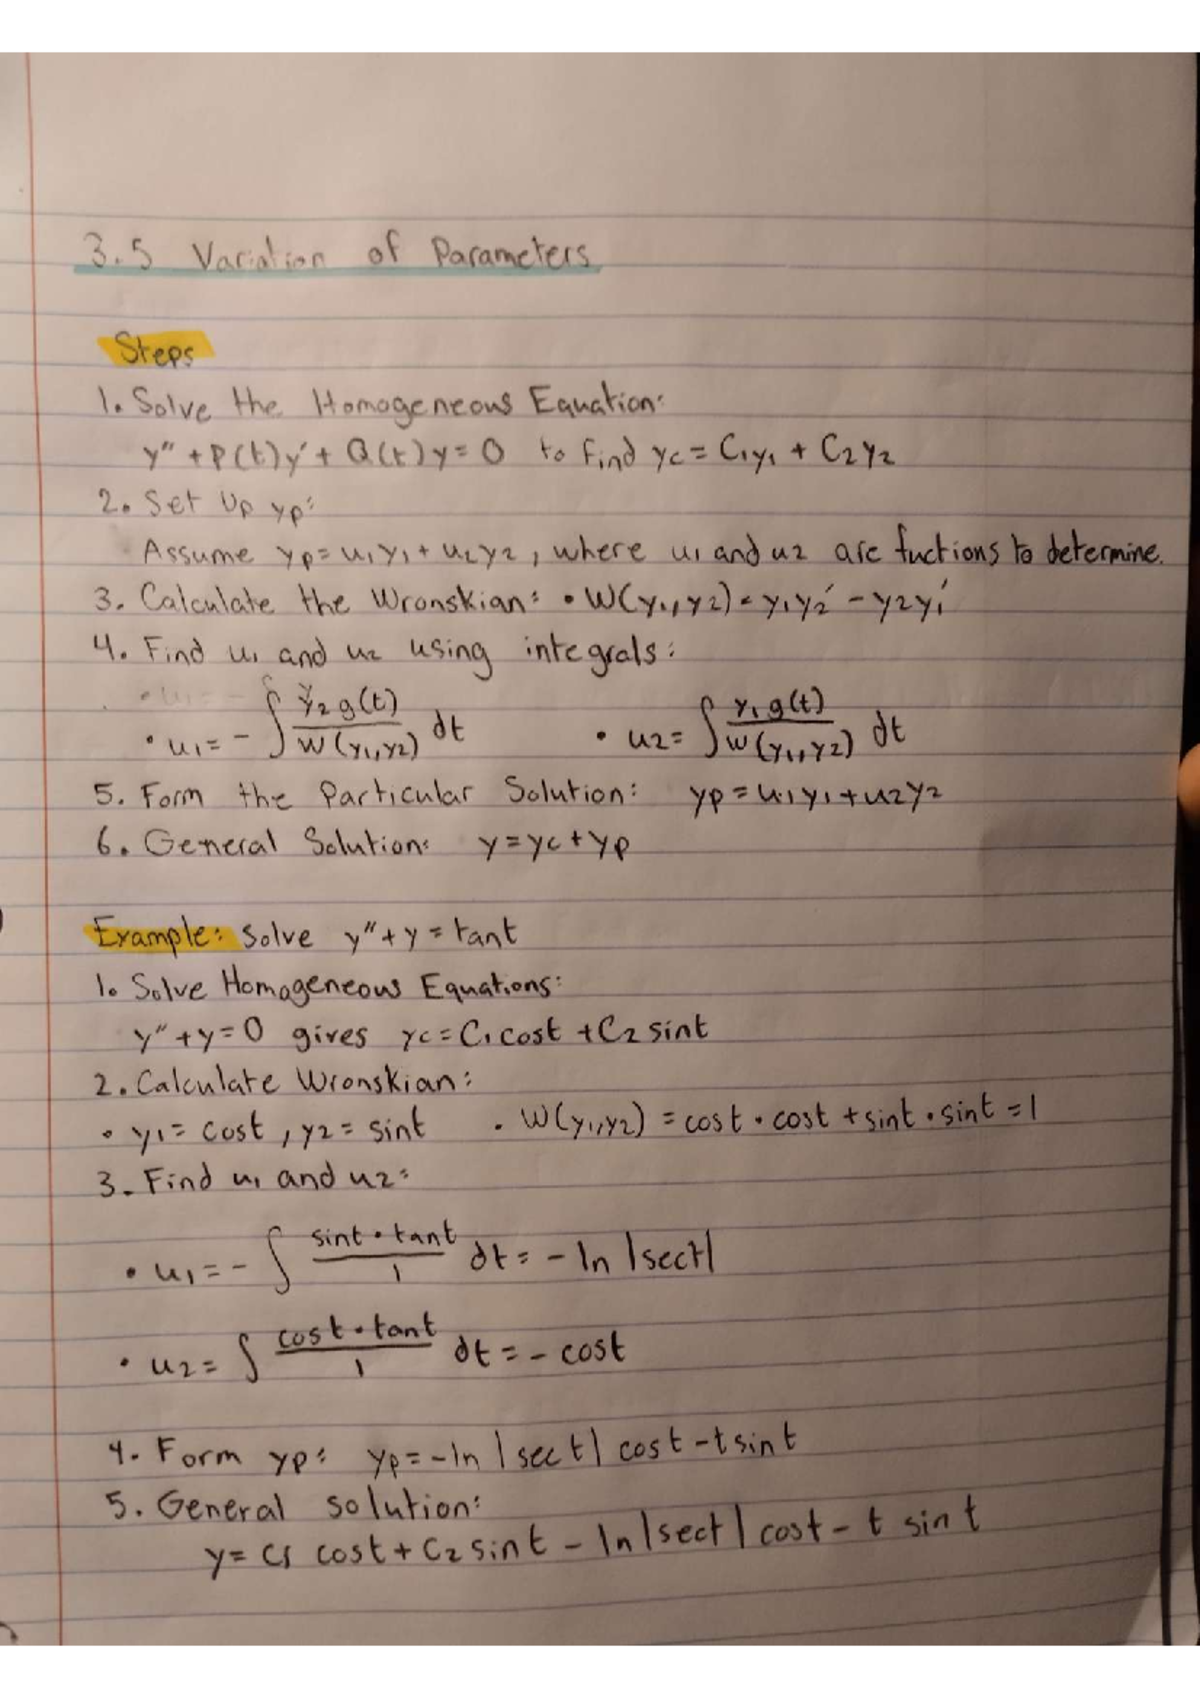 3.5 Variation of Parameters
Steps
1. Solve the Homogeneous Equation:
y'' + P(t)y' + Q(t)y = 0 to find yc = C₁y₁ + C₂y₂
2. Set Up yp:
Assume yp = u₁y₁ + u₂y₂, where u₁ and u₂ are fuctions to determine.
3. Calculate the Wronskian: • W(y₁,y₂) = y₁y₂' - y₂y₁'
4. Find u₁ and u₂ using integrals:
• u₁ = - ∫ y₂g(t)/W(y₁,y₂) dt • u₂ = ∫ y₁g(t)/W(y₁,y₂) dt
5. Form the Particular Solution: yp = u₁y₁ + u₂y₂
6. General Solution: y = yc + yp
Example: Solve y'' + y = tant
1. Solve Homogeneous Equations:
y'' + y = 0 gives yc = C₁cost + C₂sint
2. Calculate Wronskian:
• y₁ = cost, y₂ = sint • W(y₁,y₂) = cost • cost + sint • sint = 1
3. Find u₁ and u₂:
• u₁ = - ∫ sint • tant/1 dt = - ln |sect|
• u₂ = ∫ cost • tant/1 dt = - cost
4. Form yp: yp = -ln |sect| cost - tsint
5. General solution:
y = C₁ cost + C₂ sint - ln |sect| cost - t sint